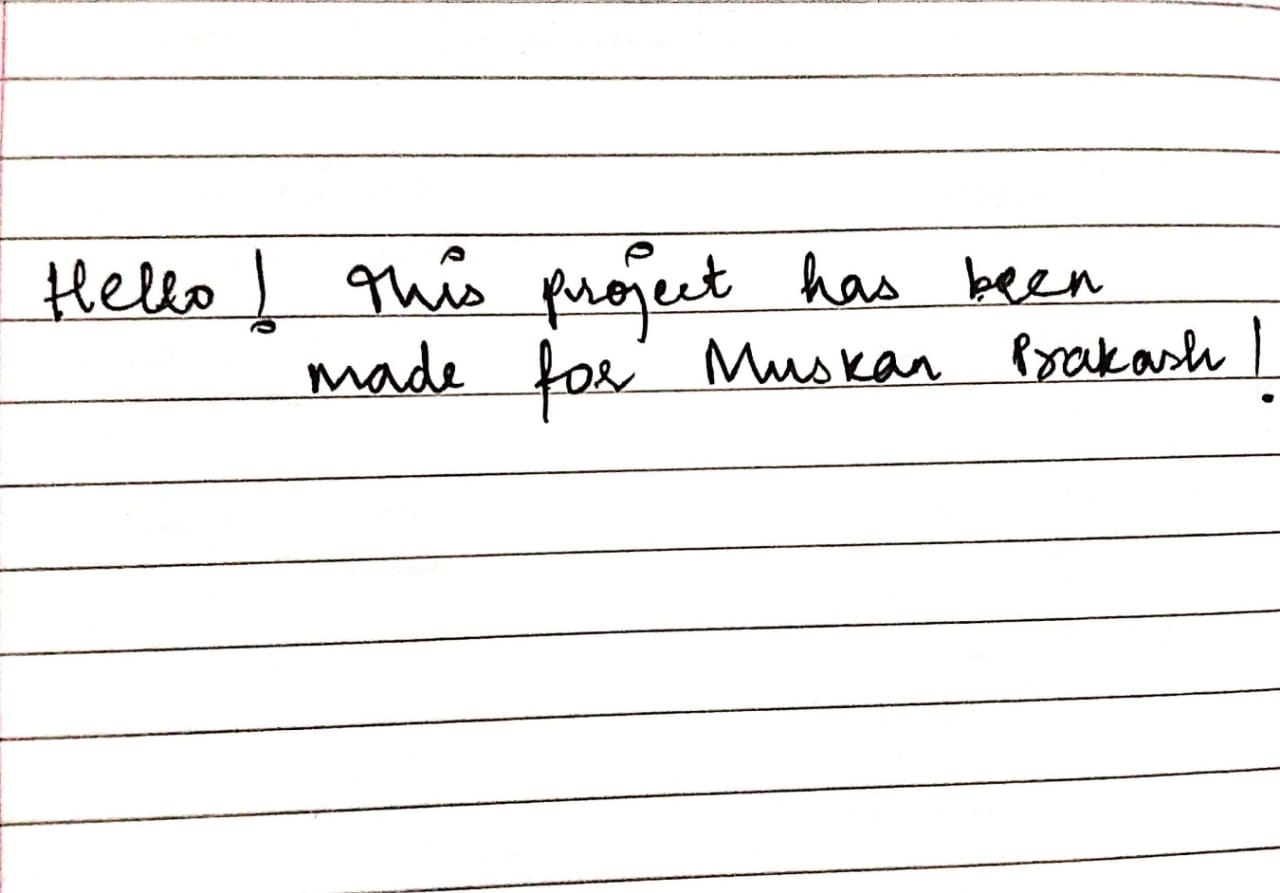 Hello! This project has been
made for Muskan Prakash!